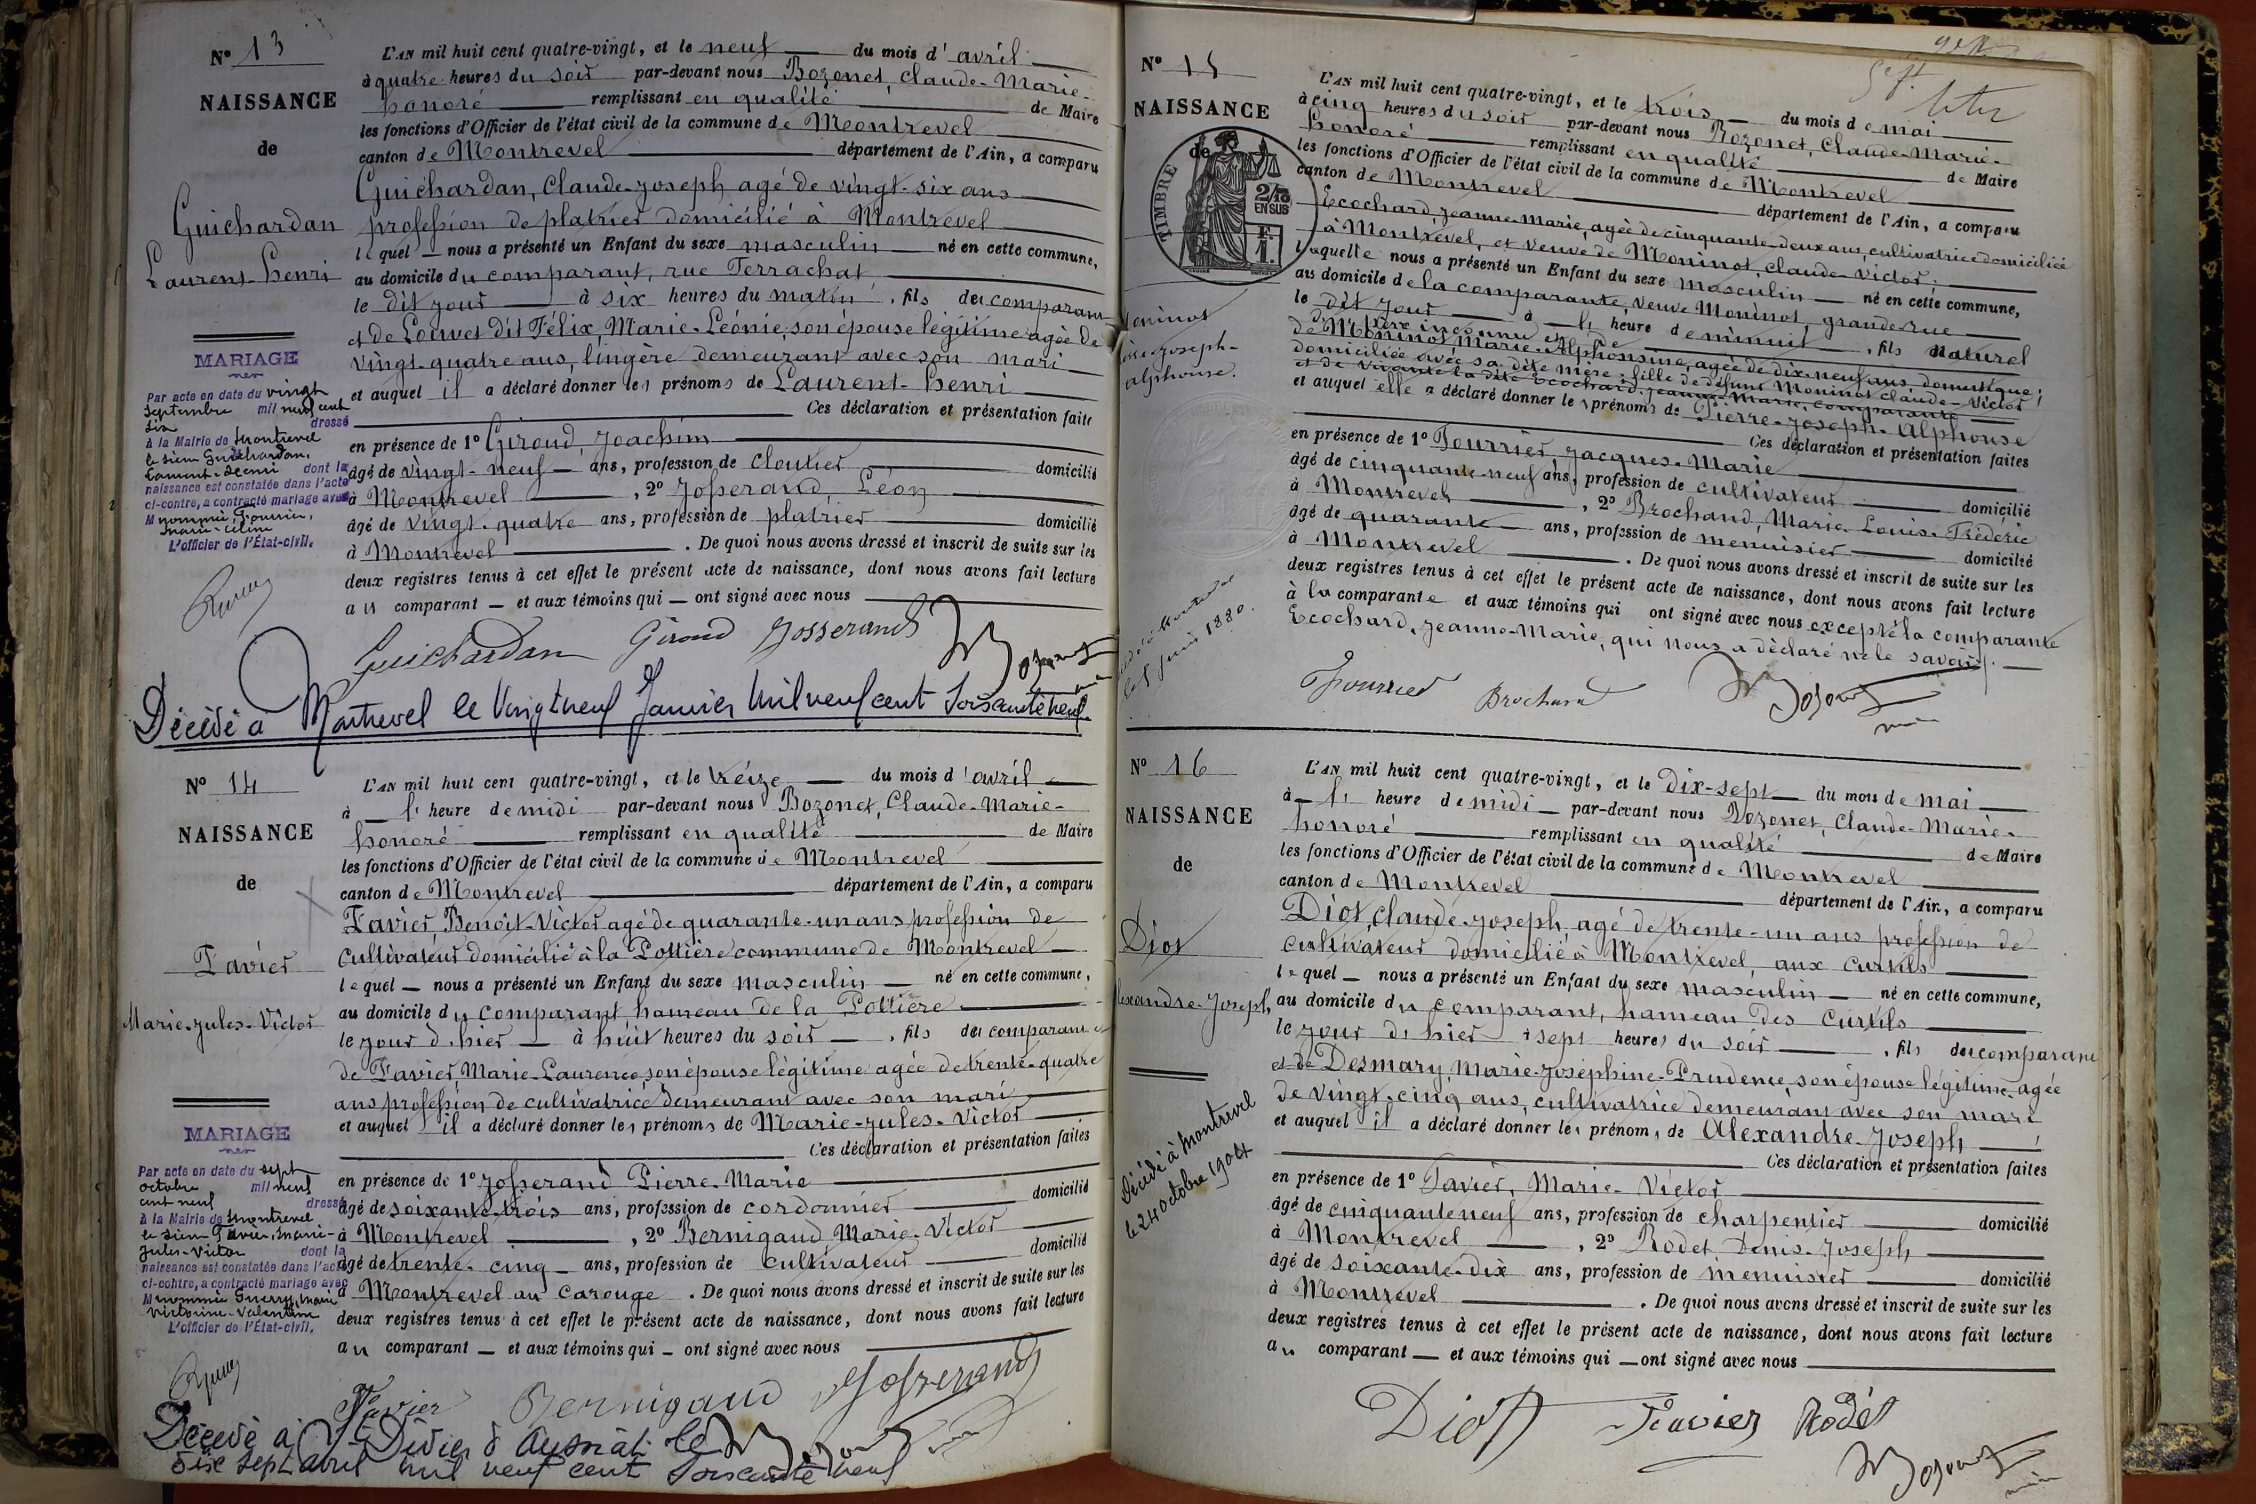 N° 13
NAISSANCE
de
Guichardan
Laurent-henri
MARIAGE
Par acte en date du vingt
septembre mil neuf cent
six dressé
à la Mairie de Montrevel
le sieur Guichardan,
Laurent-henri dont la
naissance est constatée dans l'acte
ci-contre, a contracté mariage avec
M nommée Fourrier,
Marie-Céline
L'officier de l'État-civil.
L'AN mil huit cent quatre-vingt, et le neuf du mois d'avril
à quatre heures du soir par-devant nous Bozonet, Claude-Marie-
honoré remplissant en qualité de Maire
les fonctions d'Officier de l'état civil de la commune de Montrevel
canton de Montrevel département de l'Ain, a comparu
Guichardan, Claude-Joseph agé de vingt-six ans
profession de platrier domicilié à Montrevel
lequel nous a présenté un Enfant du sexe masculin né en cette commune,
au domicile du comparant, rue Terrachat
le dit jour à six heures du matin, fils du comparant
et de Louvet dit Félix, Marie-Léonie, son épouse légitime agée de
vingt-quatre ans, lingère demeurant avec son mari
et auquel il a déclaré donner les prénoms de Laurent-henri
Ces déclaration et présentation faites
en présence de 1° Giroud, Joachim
âgé de vingt-neuf ans, profession de cloutier domicilié
à Montrevel, 2° Josserand, Léon
âgé de vingt-quatre ans, profession de platrier domicilié
à Montrevel. De quoi nous avons dressé et inscrit de suite sur les
deux registres tenus à cet effet le présent acte de naissance, dont nous avons fait lecture
au comparant et aux témoins qui ont signé avec nous
Guichardan Giroud Josserand Bozonet
Décédé à Montrevel le Vingt neuf Janvier Mil neuf cent Soixante neuf.
N° 14
NAISSANCE
de
Favier
Marie-Jules-Victor
MARIAGE
Par acte en date du sept
octobre mil neuf
cent neuf dressé
à la Mairie de Montrevel
le sieur Favier, Marie-
Jules-Victor dont la
naissance est constatée dans l'acte
ci-contre, a contracté mariage avec
M nommée Guerry, Marie
Victorine-Valentine
L'officier de l'État-civil,
L'AN mil huit cent quatre-vingt, et le treize du mois d'avril
à l' heure de midi par-devant nous Bozonet, Claude-Marie-
honoré remplissant en qualité de Maire
les fonctions d'Officier de l'état civil de la commune de Montrevel
canton de Montrevel département de l'Ain, a comparu
Favier Benoît-Victor agé de quarante-un ans profession de
cultivateur domicilié à la Pottière commune de Montrevel
lequel nous a présenté un Enfant du sexe masculin né en cette commune,
au domicile du comparant, hameau de la Pottière
le jour d'hier à huit heures du soir, fils du comparant et
de Favier, Marie-Laurence, son épouse légitime agée de trente-quatre
ans profession de cultivatrice demeurant avec son mari
et auquel il a déclaré donner les prénoms de Marie-Jules-Victor
Ces déclaration et présentation faites
en présence de 1° Josserand Pierre-Marie
âgé de soixante-trois ans, profession de cordonnier domicilié
à Montrevel, 2° Bernigaud Marie-Victor
âgé de trente-cinq ans, profession de cultivateur domicilié
à Montrevel au Carouge. De quoi nous avons dressé et inscrit de suite sur les
deux registres tenus à cet effet le présent acte de naissance, dont nous avons fait lecture
au comparant et aux témoins qui ont signé avec nous
Favier Bernigaud Josserand
Décédé à St Didier d'Aussiat le Bozonet
dix sept avril mil neuf cent soixante neuf
N° 15
NAISSANCE
de
TIMBRE
2/10
EN SUS
F.
1.
joseph-
alphonse.
juin 1880.
L'AN mil huit cent quatre-vingt, et le trois du mois de mai
à cinq heures du soir par-devant nous Bozonet, Claude-Marie-
honoré remplissant en qualité de Maire
les fonctions d'Officier de l'état civil de la commune de Montrevel
canton de Montrevel département de l'Ain, a comparu
Ecochard, Jeanne-Marie, agée de cinquante-deux ans, cultivatrice domiciliée
à Montrevel, et veuve de Moninot, Claude-Victor.
laquelle nous a présenté un Enfant du sexe masculin né en cette commune,
au domicile de la comparante, veuve Moninot, grande-rue
le dit jour à l' heure de minuit, fils naturel
de père inconnu et de
de Moninot Marie-Alphonsine, agée de dix-neuf ans, domestique,
domiciliée avec sa dite mère; fille de défunt Moninot Claude-Victor
et de vivante la dite Ecochard, Jeanne-Marie, comparante
et auquel elle a déclaré donner les prénoms de Pierre-Joseph-Alphonse
Ces déclaration et présentation faites
en présence de 1° Fourrier, Jacques-Marie
âgé de cinquante-neuf ans, profession de cultivateur domicilié
à Montrevel, 2° Brochand, Marie-Louis-Frédéric
âgé de quarante ans, profession de menuisier domicilié
à Montrevel. De quoi nous avons dressé et inscrit de suite sur les
deux registres tenus à cet effet le présent acte de naissance, dont nous avons fait lecture
à la comparante et aux témoins qui ont signé avec nous excepté la comparante
Ecochard, Jeanne-Marie, qui nous a déclaré ne le savoir.
Fourrier Brochand Bozonet
N° 16
NAISSANCE
de
Diot
Alexandre-Joseph
Décédé à Montrevel
le 24 octobre 1904
L'AN mil huit cent quatre-vingt, et le dix-sept du mois de mai
à l' heure de midi par-devant nous Bozonet, Claude-Marie-
honoré remplissant en qualité de Maire
les fonctions d'Officier de l'état civil de la commune de Montrevel
canton de Montrevel département de l'Ain, a comparu
Diot, Claude-Joseph, agé de trente-un ans profession de
cultivateur domicilié à Montrevel, aux Curtils
lequel nous a présenté un Enfant du sexe masculin né en cette commune,
au domicile du comparant, hameau des Curtils
le jour d'hier à sept heures du soir, fils du comparant
et de Desmary, Marie-Joséphine-Prudence, son épouse légitime agée
de vingt-cinq ans, cultivatrice demeurant avec son mari
et auquel il a déclaré donner les prénoms de Alexandre-Joseph
Ces déclaration et présentation faites
en présence de 1° Favier, Marie-Victor
âgé de cinquante neuf ans, profession de charpentier domicilié
à Montrevel, 2° Rodet, Denis-Joseph
âgé de soixante-dix ans, profession de menuisier domicilié
à Montrevel. De quoi nous avons dressé et inscrit de suite sur les
deux registres tenus à cet effet le présent acte de naissance, dont nous avons fait lecture
au comparant et aux témoins qui ont signé avec nous
Diot Favier Rodet
Bozonet